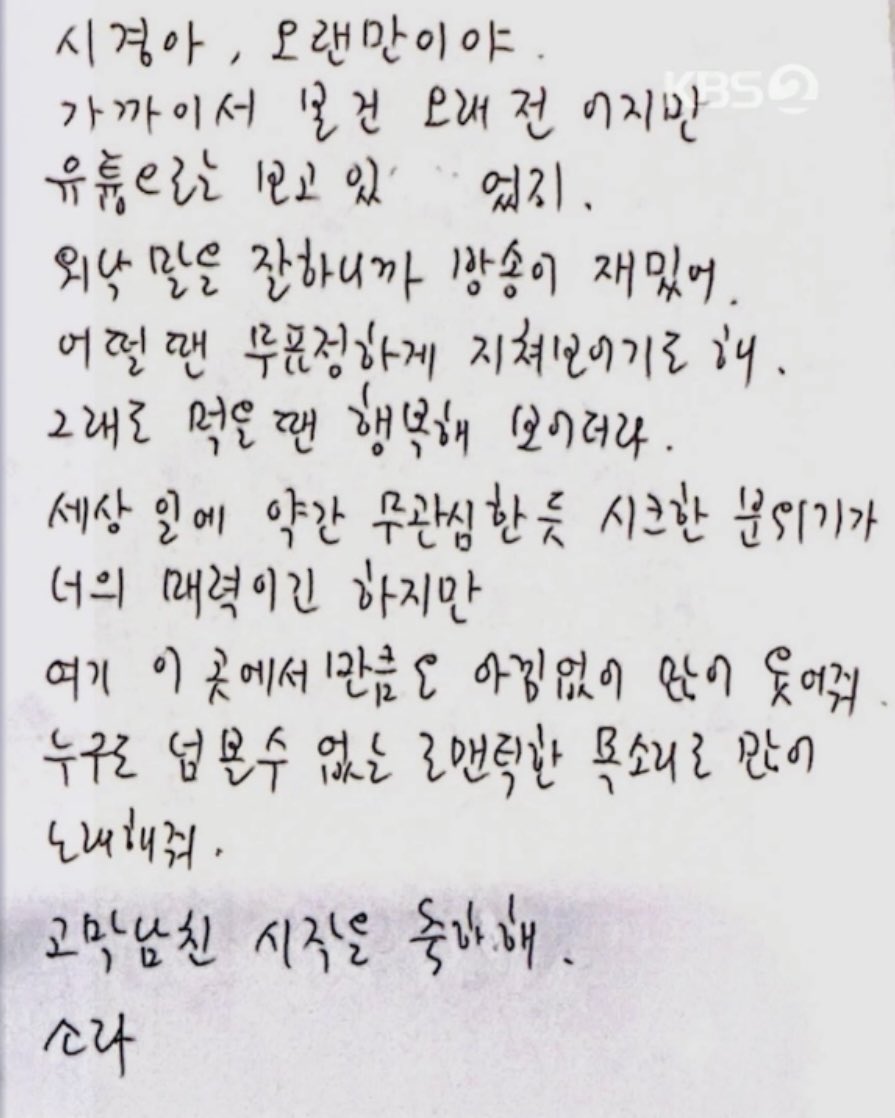 시경아, 오랜만이야.
KBS 2
가까이서 본 건 오래전 이지만
유튭으로는 보고 있 었지.
워낙 말을 잘하니까 방송이 재밌어.
어떨 땐 무표정하게 지쳐보이기도 해.
그래도 먹을 땐 행복해 보이더라.
세상 일에 약간 무관심한듯 시크한 분위기가
너의 매력이긴 하지만
여기 이 곳에서만큼은 아낌없이 많이 웃어줘.
누구도 넘볼수 없는 로맨틱한 목소리로 많이
노래해줘.
고막남친 시작을 축하해.
소라